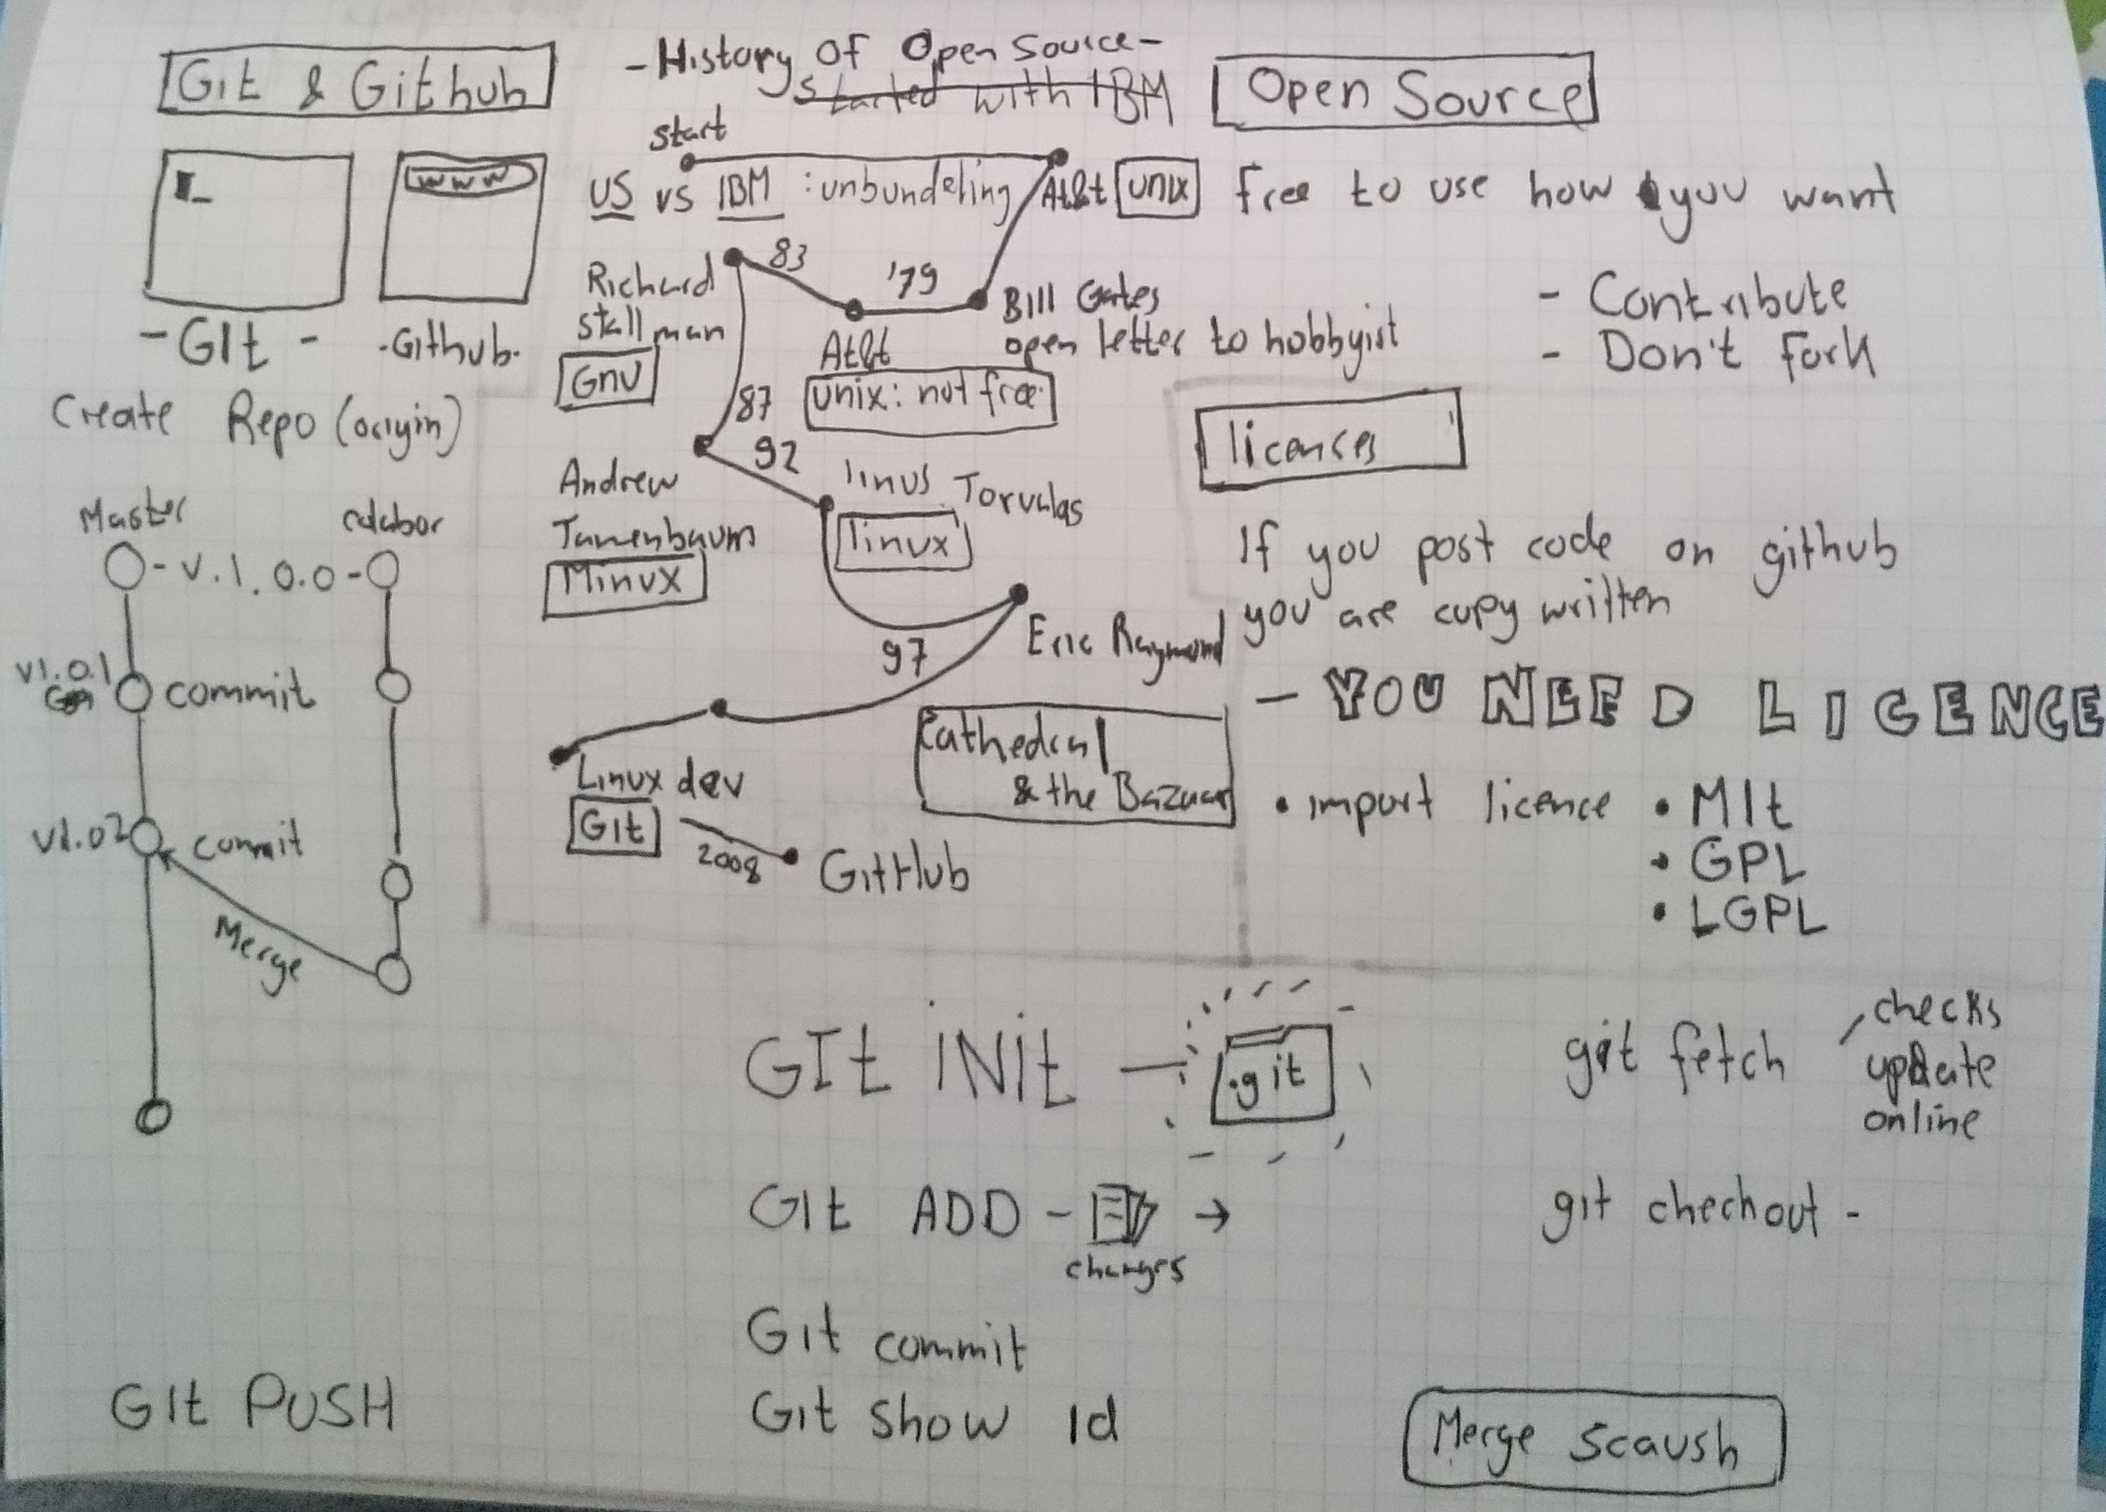 Git & Github
www
- GIt -
-Github-
Create Repo (origin)
Master
- v.1.0.0 -
v1.0.1
commit
v1.02
commit
Merge
GIt PUSH
- History Of Open Source -
Started with IBM
start
US vs IBM : unbundeling
At&t unix
83
'79
Richard
stallman
Gnu
At&t
unix: not free
Bill Gates
open letter to hobbyist
87
92
Andrew
Tanenbaum
Minux
linus Torvalds
linux
97
Eric Raymond
Cathedral
& the Bazaar
Linux dev
Git
2008
GitHub
Open Source
free to use how you want
- Contribute
- Don't Fork
licences
If you post code on github
you are copy written
- YOU NEED LICENCE
• import licence • MIt
• GPL
• LGPL
GIt iNit —
.git
GIt ADD -
→
changes
Git commit
Git show id
git fetch
checks
update
online
git checkout -
Merge scaush